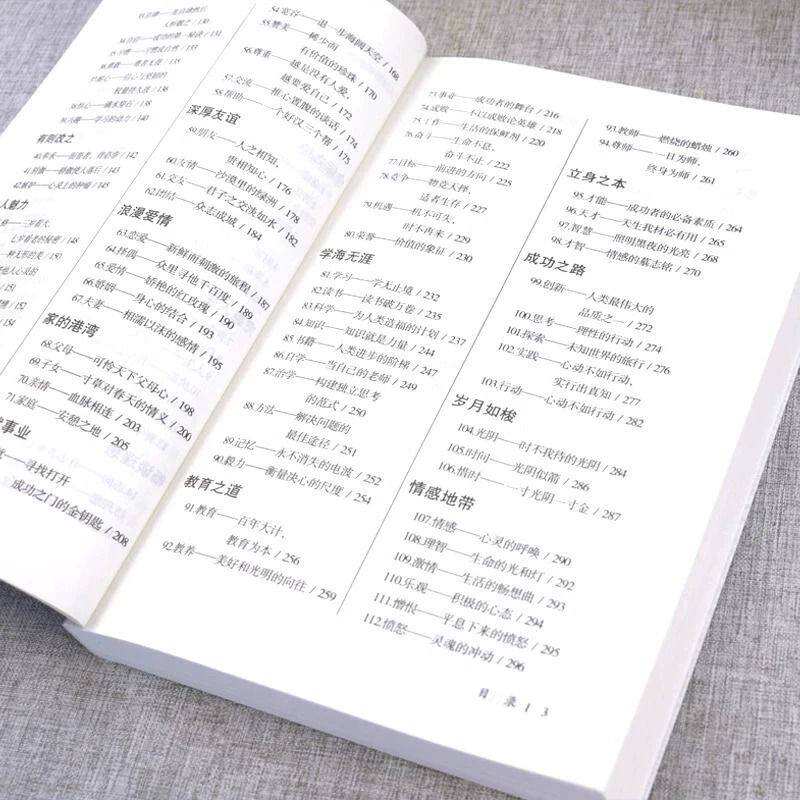 人相貌之 / 130
成功的第一秘诀 / 131
习惯成自然 / 133
勇者无敌 / 135
37.耐心——信心与坚韧的
较量持久战 / 137
38.恒心——滴水穿石 / 138
39.兴趣——学习的动力 / 140
有则改之
/ 142
/ 144
/ 145
人魅力
三岁看大，
七岁看老的秘密 / 148
种无形的美 / 150
他人心灵的
/ 152
/ 154
54.宽容——退一步海阔天空 / 168
55.赞美——稀少而
有价值的珍珠 / 170
56.尊重——越是没有人爱，
越要爱自己 / 172
57.交流——推心置腹的谈话 / 174
58.帮助——一个好汉三个帮 / 175
深厚友谊
59.朋友——人之相知，
贵相知心 / 176
60.友情——沙漠里的绿洲 / 178
61.交友——君子之交淡如水 / 182
62.团结——众志成城 / 184
浪漫爱情
63.恋爱——新鲜而刺激的旅程 / 187
64.择偶——众里寻他千百度 / 189
65.爱情——娇艳的红玫瑰 / 190
66.婚姻——身心的结合 / 193
67.夫妻——相濡以沫的感情 / 195
家的港湾
68.父母——可怜天下父母心 / 198
69.子女——寸草对春天的情义 / 200
70.亲情——血脉相连 / 203
71.家庭——安憩之地 / 205
事业
——寻找打开
成功之门的金钥匙 / 208
73.事业——成功者的舞台 / 216
74.成败——不以成败论英雄 / 218
75.工作——生活的保鲜剂 / 220
76.奋斗——生命不息，
奋斗不止 / 222
77.目标——前进的方向 / 225
78.竞争——物竞天择，
适者生存 / 227
79.机遇——机不可失，
时不再来 / 229
80.荣誉——价值的象征 / 230
学海无涯
81.学习——学无止境 / 232
82.读书——读书破万卷 / 235
83.科学——为人类造福的计划 / 237
84.知识——知识就是力量 / 244
85.书籍——人类进步的阶梯 / 247
86.自学——当自己的老师 / 249
87.治学——构建独立思考
的范式 / 250
88.方法——解决问题的
最佳途径 / 251
89.记忆——永不消失的电波 / 252
90.毅力——衡量决心的尺度 / 254
教育之道
91.教育——百年大计，
教育为本 / 256
92.教养——美好和光明的向往 / 259
93.教师——燃烧的蜡烛 / 260
94.尊师——一日为师，
终身为师 / 261
立身之本
95.才能——成功者的必备素质 / 264
96.天才——天生我材必有用 / 265
97.智慧——照明黑夜的光亮 / 268
98.才智——情感的墓志铭 / 270
成功之路
99.创新——人类最伟大的
品质之一 / 272
100.思考——理性的行动 / 274
101.探索——未知世界的旅行 / 276
102.实践——心动不如行动，
实行出真知 / 277
103.行动——心动不如行动 / 282
岁月如梭
104.光阴——时不我待的光阴 / 284
105.时间——光阴似箭 / 286
106.惜时——一寸光阴一寸金 / 287
情感地带
107.情感——心灵的呼唤 / 290
108.理智——生命的光和灯 / 292
109.激情——生活的畅想曲 / 293
110.乐观——积极的心态 / 294
111.憎恨——平息下来的愤怒 / 295
112.愤怒——灵魂的冲动 / 296
目 录 | 3